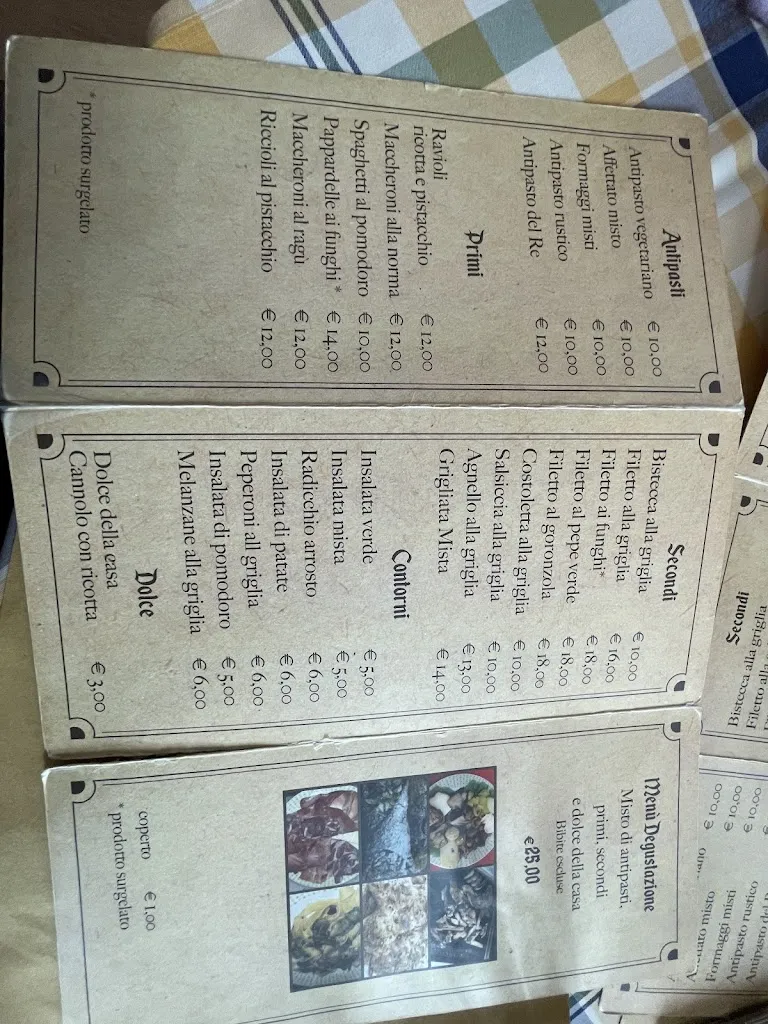 Antipasti
Antipasto vegetariano € 10,00
Affettato misto € 10,00
Formaggi misti € 10,00
Antipasto rustico € 10,00
Antipasto del Re € 12,00
Primi
Ravioli
ricotta e pistacchio € 12,00
Maccheroni alla norma € 12,00
Spaghetti al pomodoro € 10,00
Pappardelle ai funghi * € 14,00
Maccheroni al ragù € 12,00
Riccioli al pistacchio € 12,00
* prodotto surgelato
Secondi
Bistecca alla griglia € 10,00
Filetto alla griglia € 16,00
Filetto ai funghi* € 18,00
Filetto al pepe verde € 18,00
Filetto al goronzola € 18,00
Costoletta alla griglia € 10,00
Salsiccia alla griglia € 10,00
Agnello alla griglia € 13,00
Grigliata Mista € 14,00
Contorni
Insalata verde € 5,00
Insalata mista € 5,00
Radicchio arrosto € 6,00
Insalata di patate € 6,00
Peperoni all griglia € 6,00
Insalata di pomodoro € 5,00
Melanzane alla griglia € 6,00
Dolce
Dolce della casa
Cannolo con ricotta € 3,00
Menù Degustazione
Misto di antipasti,
primi, secondi
e dolce della casa
Bibite escluse
€ 25,00
coperto € 1,00
* prodotto surgelato
Secondi
Bistecca alla griglia
Filetto alla
misto
Formaggi misti
Antipasto rustico
Antipasto del
€ 10,00